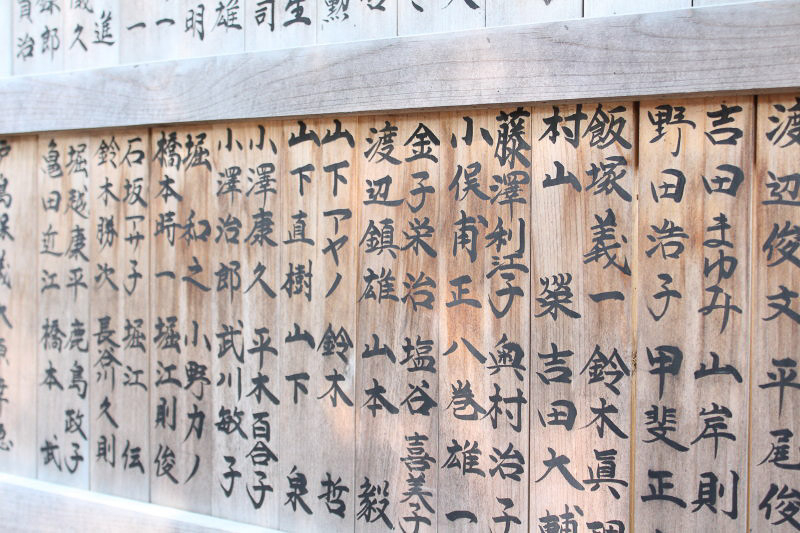 勲
生
司
雄
明
一
一
進
久
郎
治
渡辺俊文 平尾俊
吉田まゆみ 山岸則
野田浩子 甲斐正
飯塚義一 鈴木眞
村山 榮 吉田大輔
藤澤利江子 奥村治子
小俣甫正 八巻雄一
金子栄治 塩谷喜美子
渡辺鎮雄 山本 毅
山下アヤノ 鈴木 哲
山下直樹 山下 泉
小澤康久 平木百合子
小澤治郎 武川敏子
堀 和之 小野カノ
橋本時一 堀江則俊
石坂マサ子 堀江 伝
鈴木勝次 長谷川久則
堀越康平 鹿島政子
亀田近江 橋本 武